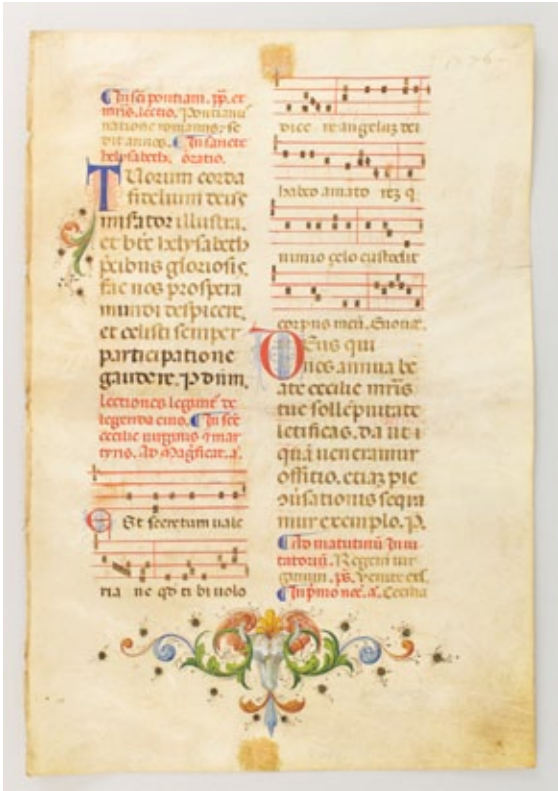 In sci pontiani. pp. et
mris. lectio. Pontianus
natione romanus, se
dit annos. In sancte
helysabeth. oratio.
Tuorum corda
fidelium deus
miserator illustra.
et bte helysabeth
pcibus gloriosis
fac nos prospera
mundi despicere.
et celesti semper
participatione
gaudere. P dnm.
lectiones legunt de
legenda eius. In sce
cecilie virginis & mar
tyris. Ad Magnificat. a.
Est secretum vale
ria ne qd ti bi volo
dice re angeluz dei
habeo amato rez q
nimio zelo custodit
corpus meu. Evovae.
Deus qui
nos annua be
ate cecilie mris
tue sollepnitate
letificas. da ut
qua veneramur
offitio. etiaz pie
sequa
mur exemplo. P.
Ad matutinu Invi
tatoriu. Regem vir
ginum. ps. Venite exl.
In primo noc. a. Cecilia